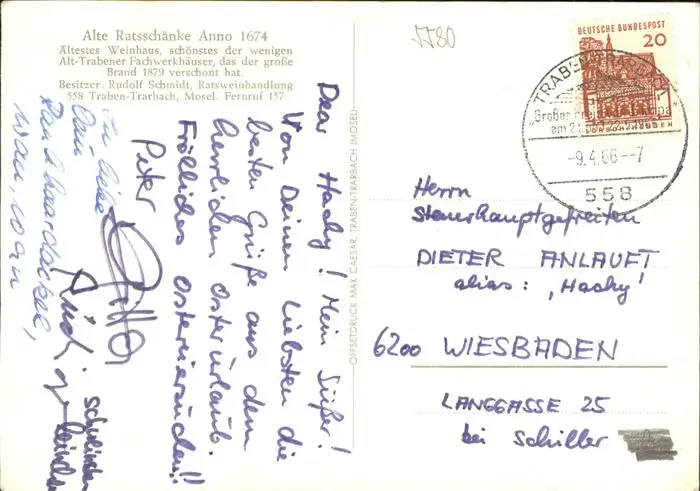 Alte Ratsschänke Anno 1674
Ältestes Weinhaus, schönstes der wenigen
Alt-Trabener Fachwerkhäuser, das der große
Brand 1879 verschont hat.
Besitzer: Rudolf Schmidt, Ratsweinhandlung
558 Traben-Trarbach, Mosel. Fernruf 157
5580
DEUTSCHE BUNDESPOST
20
TRABEN-TRARBACH
"Großer Preis
am 2
-9.4.66--7
558
Dear Hachy! Mein Süßer!
Von Deinen Liebsten die
besten Grüße aus dem
herrlichen Osterurlaub.
Fröhliches Ostereiersuchen!!
Peter
Gitta
wau, wau
OFFSETDRUCK MAX CAESAR, TRABEN-TRARBACH (MOSEL)
Herrn
Steuerhauptgefreiten
DIETER ANLAUFT
alias: "Hachy"
6200 WIESBADEN
LANGGASSE 25
bei Schiller